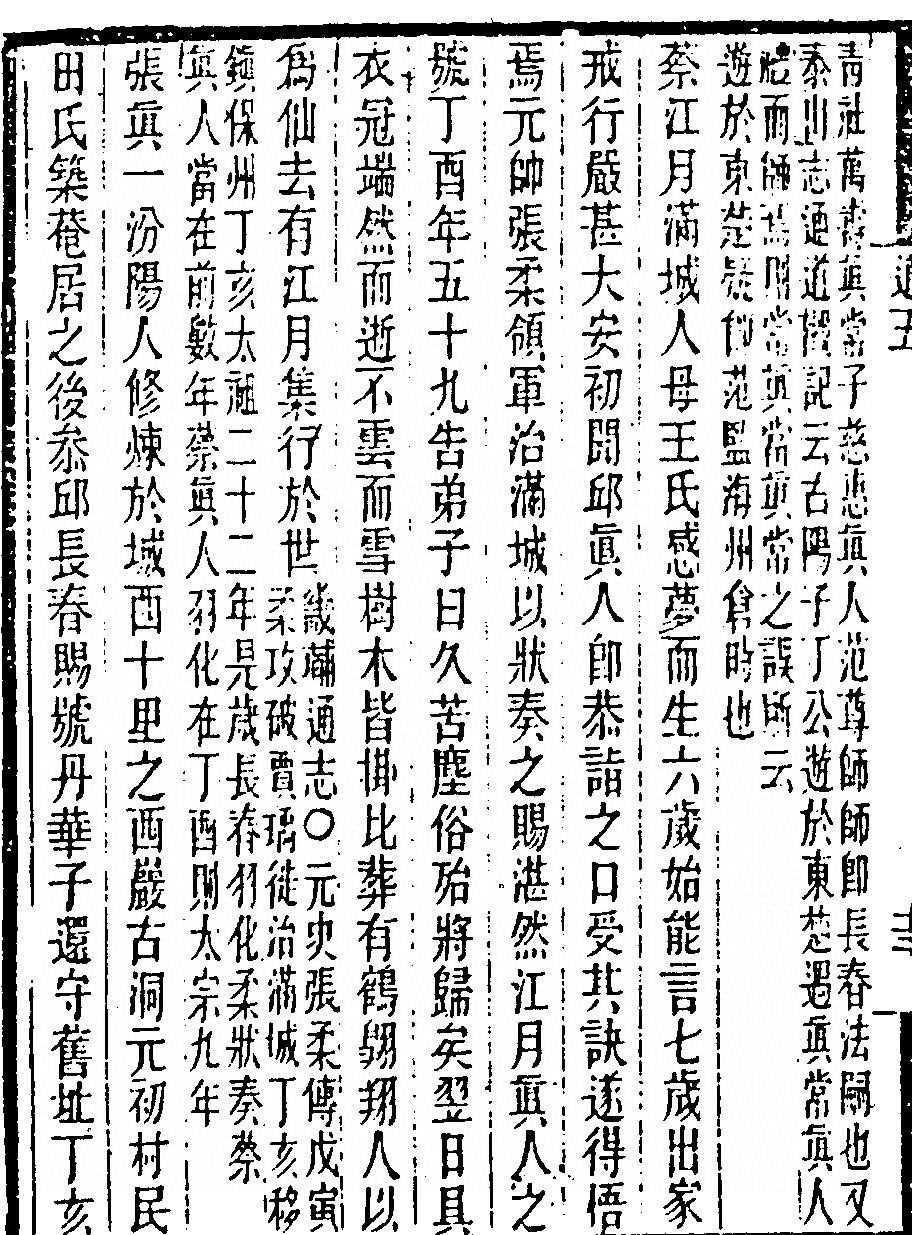 青社萬壽眞常子慈惠眞人范尊師師卽長春法嗣也又
泰山志通道觀記云古隅子丁公遊於東楚遇眞常眞人
禮而師焉則常眞常眞常之誤所云
遊於東楚疑卽范監海州倉時也
蔡江月滿城人母王氏感夢而生六歲始能言七歲出家
戒行嚴甚大安初聞邱眞人卽恭詣之口受其訣遂得悟
焉元帥張柔領軍治滿城以狀奏之賜湛然江月眞人之
號丁酉年五十九告弟子曰久苦塵俗殆將歸矣翌日具
衣冠端然而逝不雲而雪樹木皆掛比葬有鶴翱翔人以
爲仙去有江月集行於世
畿輔通志〇元史張柔傳戊寅
柔攻破賈瑀徙治滿城丁亥移
鎮保州丁亥太祖二十二年是歲長春羽化柔狀奏蔡
眞人當在前數年蔡眞人羽化在丁酉則太宗九年
張眞一汾陽人修煉於城西十里之西巖古洞元初村民
田氏築菴居之後叅邱長春賜號丹華子還守舊址丁亥
道五